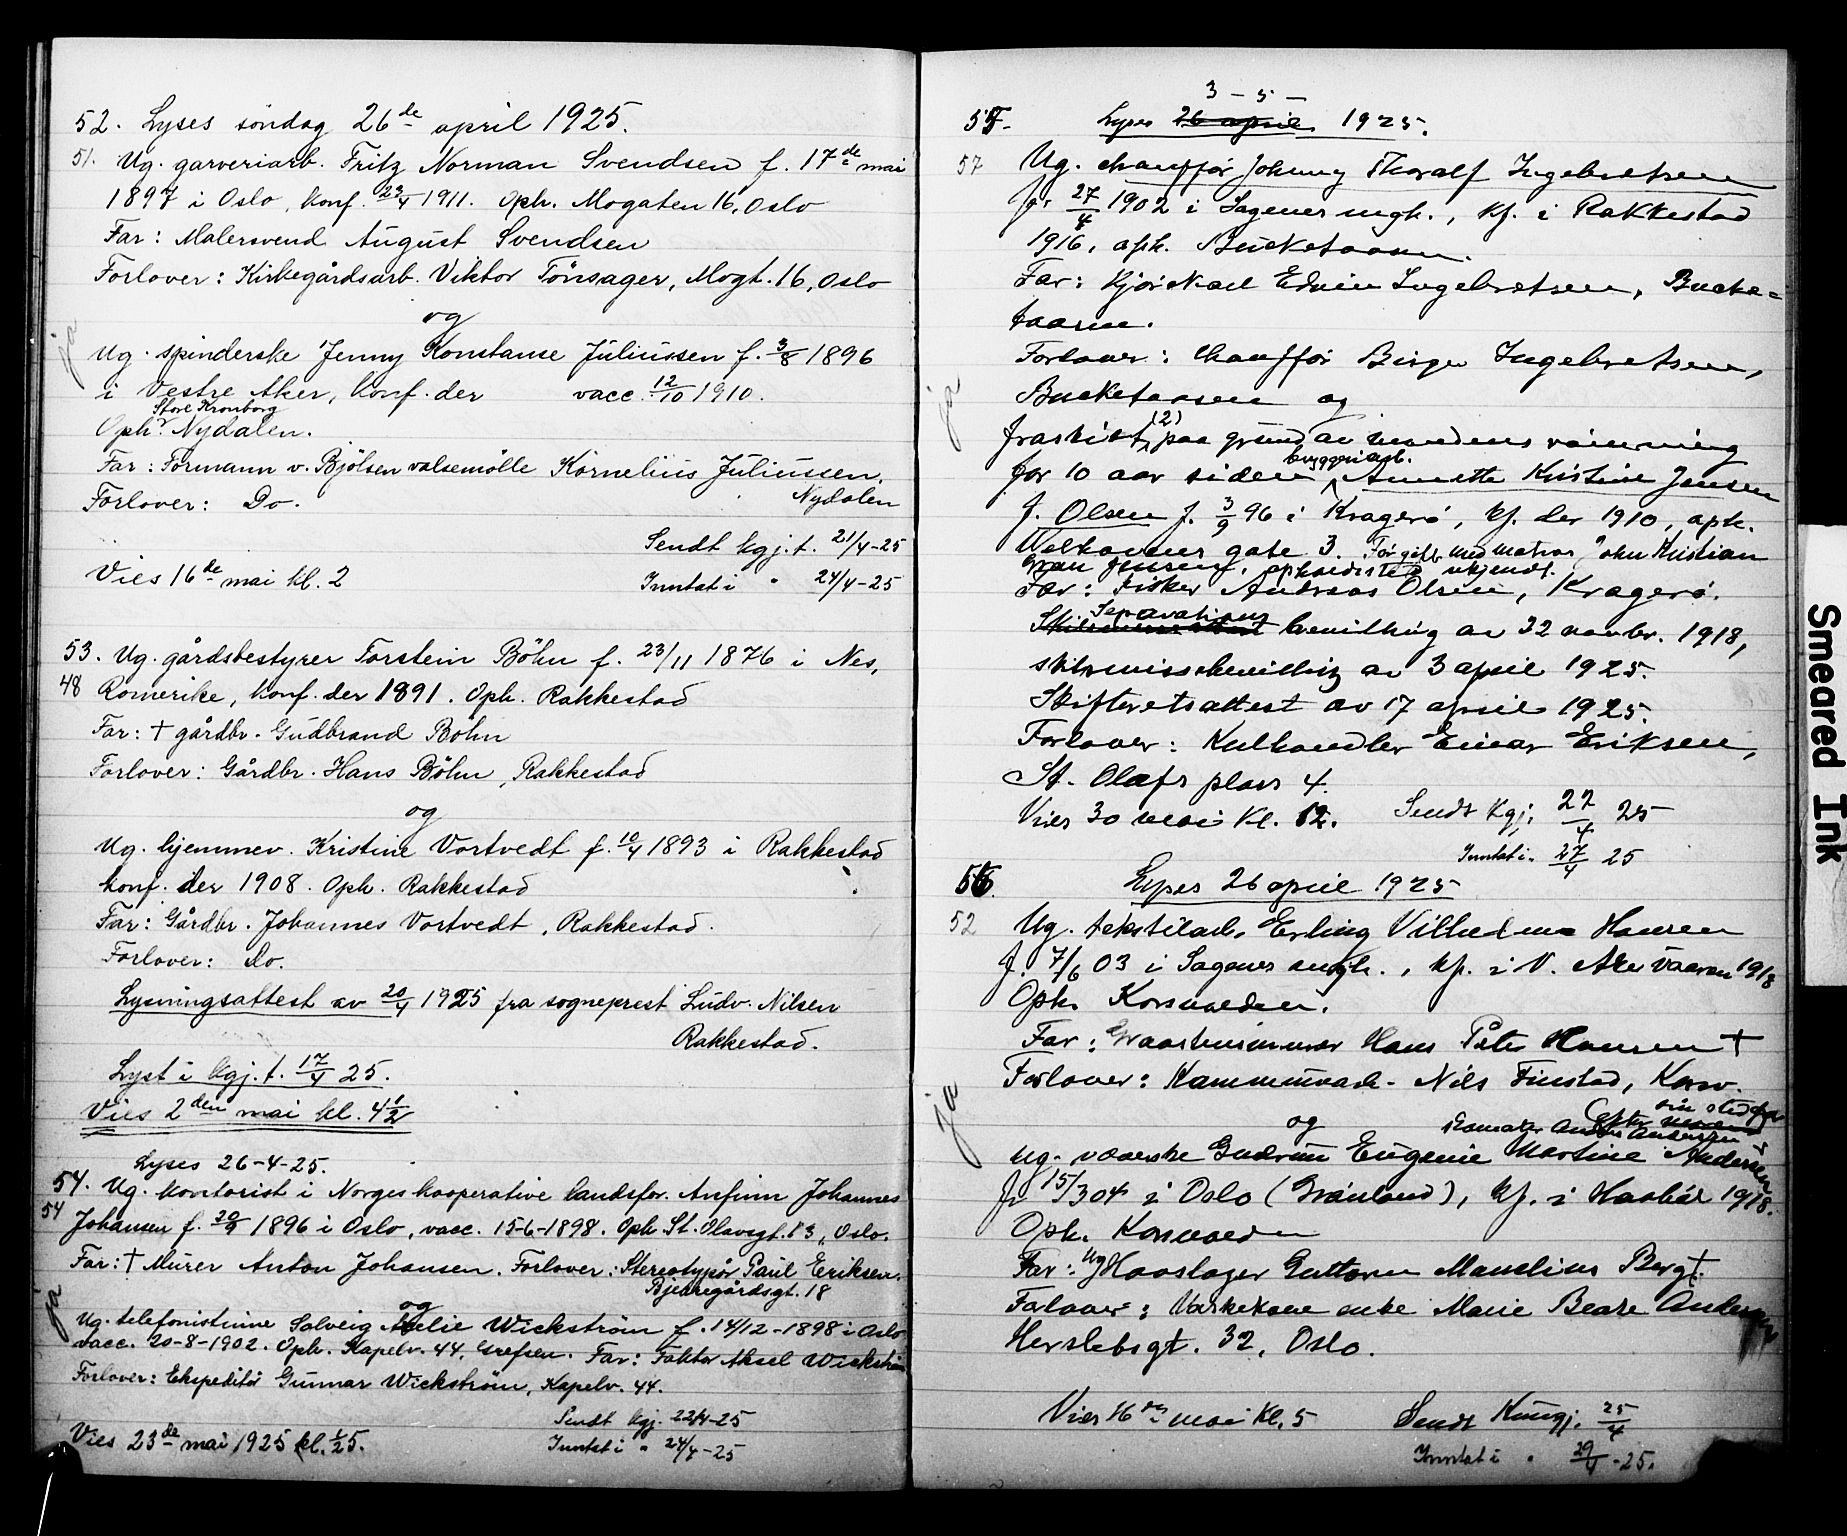 52. Lyses söndag 26de april 1925.
51. Ug. garveriarb. Fritz Norman Svendsen f. 17de mai
1897 i Oslo, konf. 23/4 1911. Oph. Mogaten 16, Oslo
Far: Malersvend August Svendsen
Forlover: Kirkegårdsarb. Viktor Tönsager, Mogt. 16, Oslo
og
ja
Ug. spinderske Jenny Konstanse Juliussen f. 3/8 1896
i Vestre Aker, konf. der vacc. 12/10 1910.
Store Kronborg
Oph. Nydalen.
Far: Formann v. Bjölsen valsemölle Kornelius Juliussen,
Nydalen
Forlover: Do.
Sendt kgj. t. 21/4-25
Vies 16de mai kl. 2
Inntat i " 24/4-25
53. Ug. gårdsbestyrer Torstein Böhn f. 23/11 1876 i Nes,
48 Romerike, konf. der 1891. Oph. Rakkestad
Far: † gårdbr. Gudbrand Böhn
Forlover: Gårdbr. Hans Böhn, Rakkestad
og
Ug. hjemmev. Kristine Vortvedt f. 10/4 1893 i Rakkestad
konf. der 1908. Oph. Rakkestad
Far: Gårdbr. Johannes Vortvedt, Rakkestad.
Forlover: Do.
Lysningsattest av 20/4 1925 fra sogneprest Ludv. Nilsen
Rakkestad.
Lyst i kgj. t. 17/4 25.
Vies 2den mai kl. 4 1/2
Lyses 26-4-25.
54. Ug. kontorist i Norges kooperative landsfor. Anfinn Johannes
54 Johansen f. 20/9 1896 i Oslo, vacc. 15-6-1898. Oph. St. Olavsgt. 13, Oslo.
Far: † Murer Anton Johansen. Forlover: Stereotypör Paul Eriksen,
Bjerregårdsgt. 18
og
ja
Ug. telefonistinne Solveig Wickström f. 14/12-1898 i Oslo
vacc. 20-8-1902. Oph. Kapelv. 44, Grefsen. Far: Faktor Aksel Wickström
Forlover: Ekspeditör Gunnar Wickström, Kapelv. 44.
Sendt kgj. 22/4-25
Vies 23de mai 1925 kl. 1/2 5.
Inntat i " 24/4-25
3-5-
55. Lyses 26 april 1925.
57 Ug. chauffør Johnny Thoralf Ingebretsen
f. 27/4 1902 i Sagenes mgh., kf. i Rakkestad
1916, oph.
Far: Edvin Ingebretsen,
Forlover: chauffør Birger Ingebretsen,
og
ja
fraskilt (2) paa grund av mandens rømning
byggeriarb.
for 10 aar siden Annette Kristine Jensen
f. Olsen f. 3/9 96 i Kragerø, kf. der 1910, oph.
Welhavens gate 3. For. gift med matros John Kristian
Jensen, opholdssted ukjendt.
Far: Fisker Andreas Olsen, Kragerø.
Separations
bevilling av 22 novbr. 1918,
skilsmissebevilling av 3 april 1925.
Skifteretsattest av 17 april 1925.
Forlover: Kulhandler Einar Eriksen,
St. Olafs plass 4.
Vies 30 mai kl. 12. Sendt kgj. 22/4 25
Inntat i " 27/4 25
56. Lyses 26 april 1925
52 Ug. tekstilarb. Erling Vilhelm Hansen
f. 7/6 03 i Sagenes mgh., kf. i V. Aker vaaren 1918
Oph. Korsvolden.
Far: Hans Peter Hansen †
Forlover: Nils Finstad, Korsv.
ja
og
Ug. væverske Gudrun Eugenie Martine Andersen
f. 15/3 04 i Oslo (Grønland), kf. i Haabøl 1918.
Oph. Korsvolden
Far: Ug. Guttorm Mandius Berg †.
Forlover: Vaskekone enke Marie Beate Andersen
Herslebsgt. 32, Oslo.
Vies 16de mai kl. 5 Sendt Kungj. 25/4
Inntat i " 29/4-25.
Smeared Ink